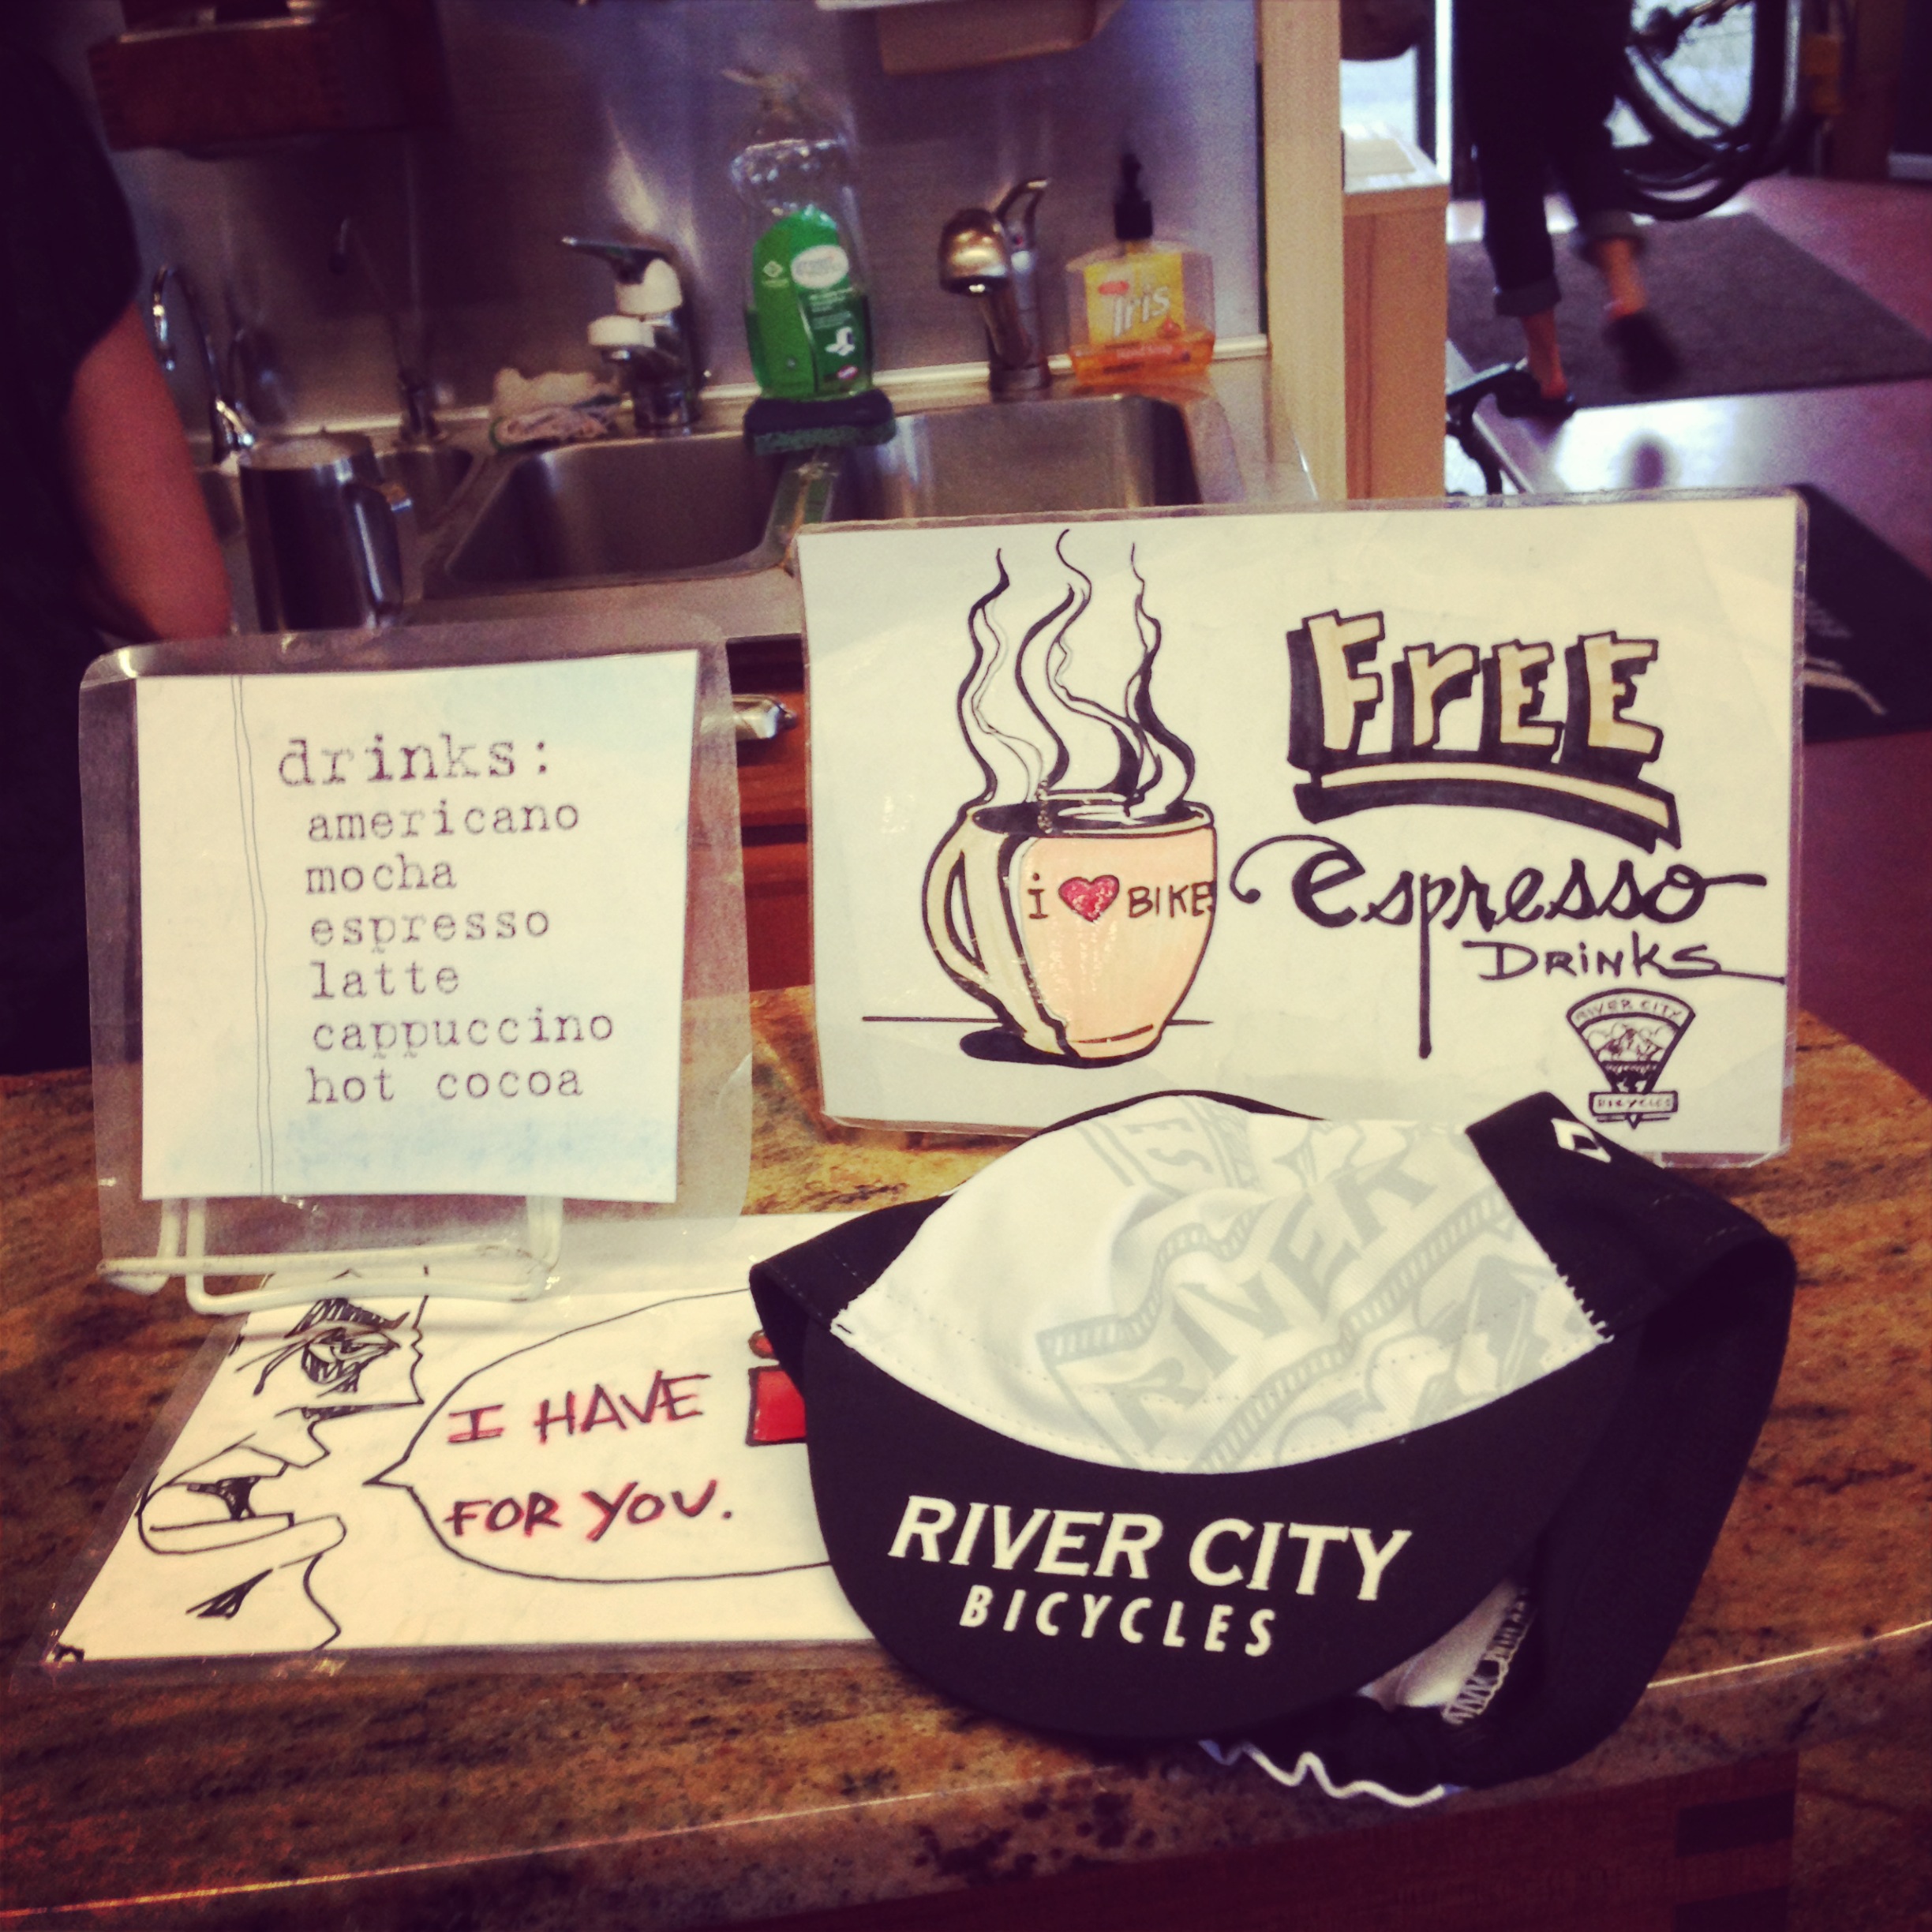 Iris
drinks:
americano
mocha
espresso
latte
cappuccino
hot cocoa
FrEE
espresso
DRiNKS
i ♥ BIKES
RIVER CITY
BICYCLES
I HAVE
FOR YOU.
RIVER
RIVER CITY
BICYCLES